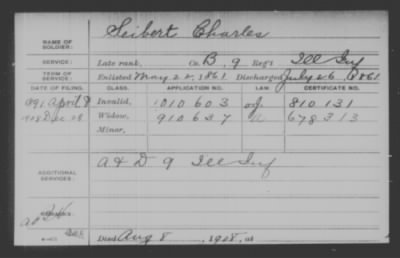 Seibert Charles
NAME OF SOLDIER:
SERVICE: Late rank, Co. B, 9 Reg't Ill Inf
TERM OF SERVICE: Enlisted May 22, 1861 Discharged July 26, 1861
DATE OF FILING. CLASS. APPLICATION NO. LAW. CERTIFICATE NO.
1891 April 8 Invalid, 1010603 810131
1908 Dec 28 Widow, 910637 678313
Minor,
ADDITIONAL SERVICES: A & D 9 Ill Inf
REMARKS:
Died Aug 8, 1908, at